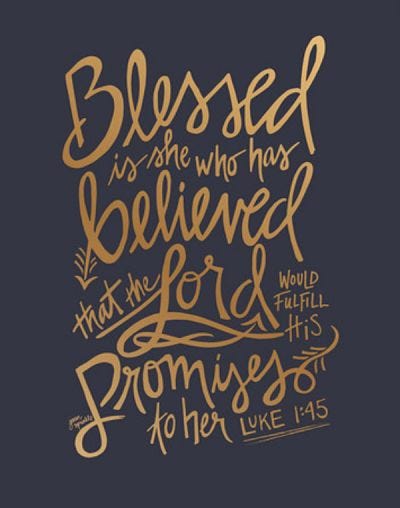 Blessed
is she who has
believed
that the Lord WOULD
FULFILL
HiS
Promises
to her LUKE 1:45